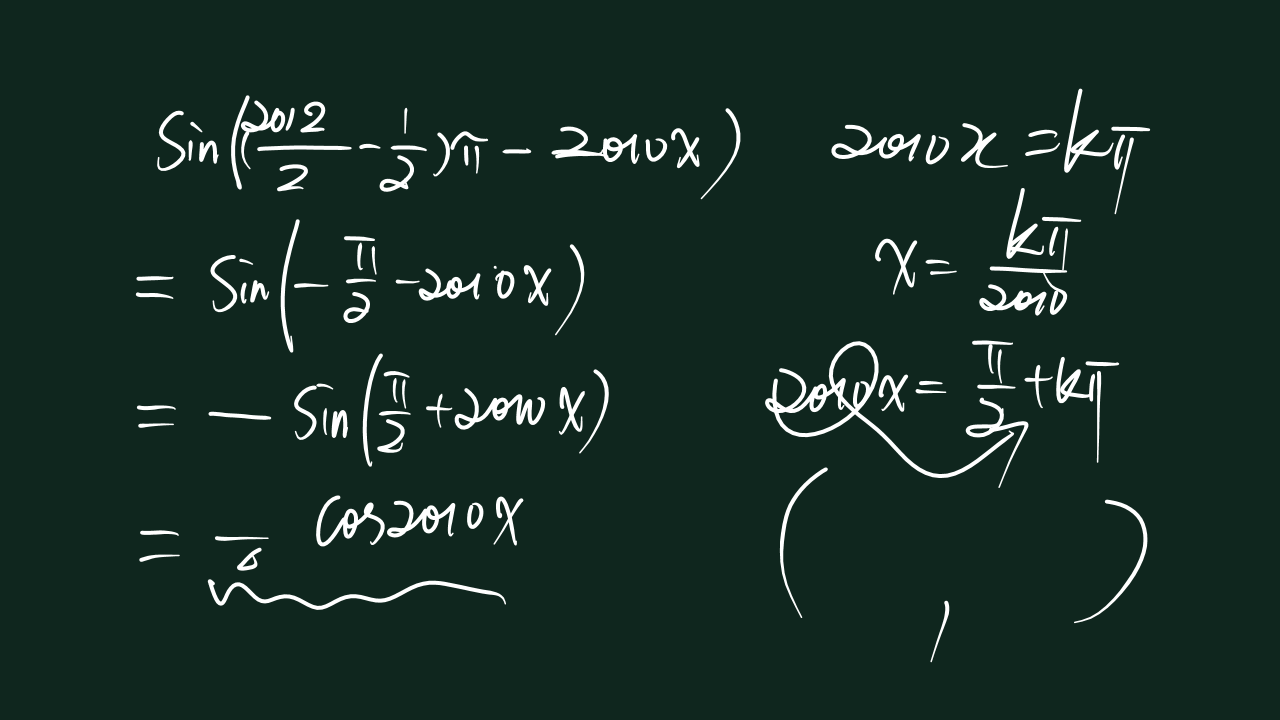 Sin((2012/2 - 1/2)π - 2010x)
= Sin(-π/2 - 2010x)
= - Sin(π/2 + 2010x)
= - cos2010x
2010x = kπ
x = kπ/2010
2010x = π/2 + kπ
( , )